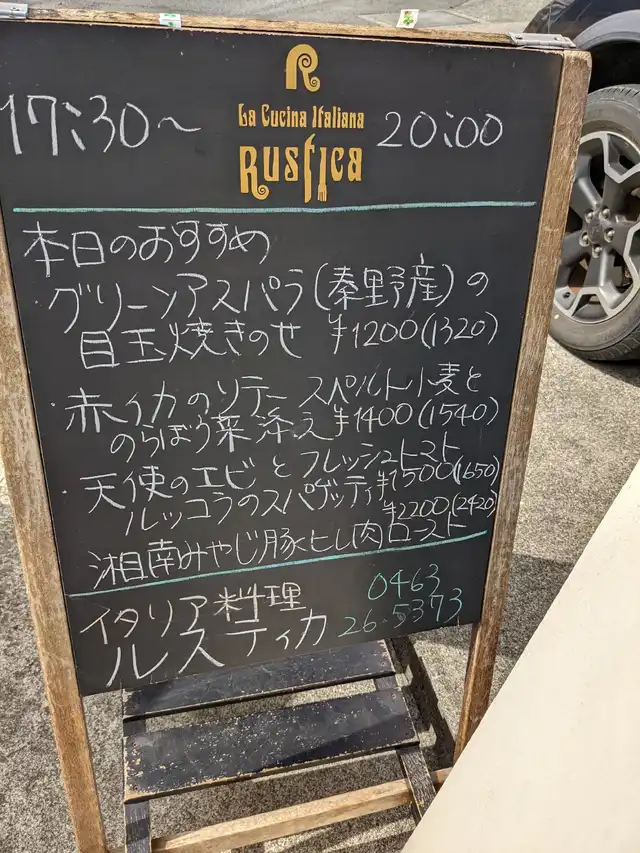 R
La Cucina Italiana
17:30〜 Rustica 20:00
本日のおすすめ
・グリーンアスパラ(秦野産)の
目玉焼きのせ ¥1200(1320)
・赤イカのソテー スペルト小麦と
のらぼう菜添え ¥1400(1540)
・天使のエビとフレッシュトマト
ルッコラのスパゲッティ ¥1500(1650)
¥2200(2420)
湘南みやじ豚ヒレ肉ロースト
イタリア料理 0463
ルスティカ 26.5373